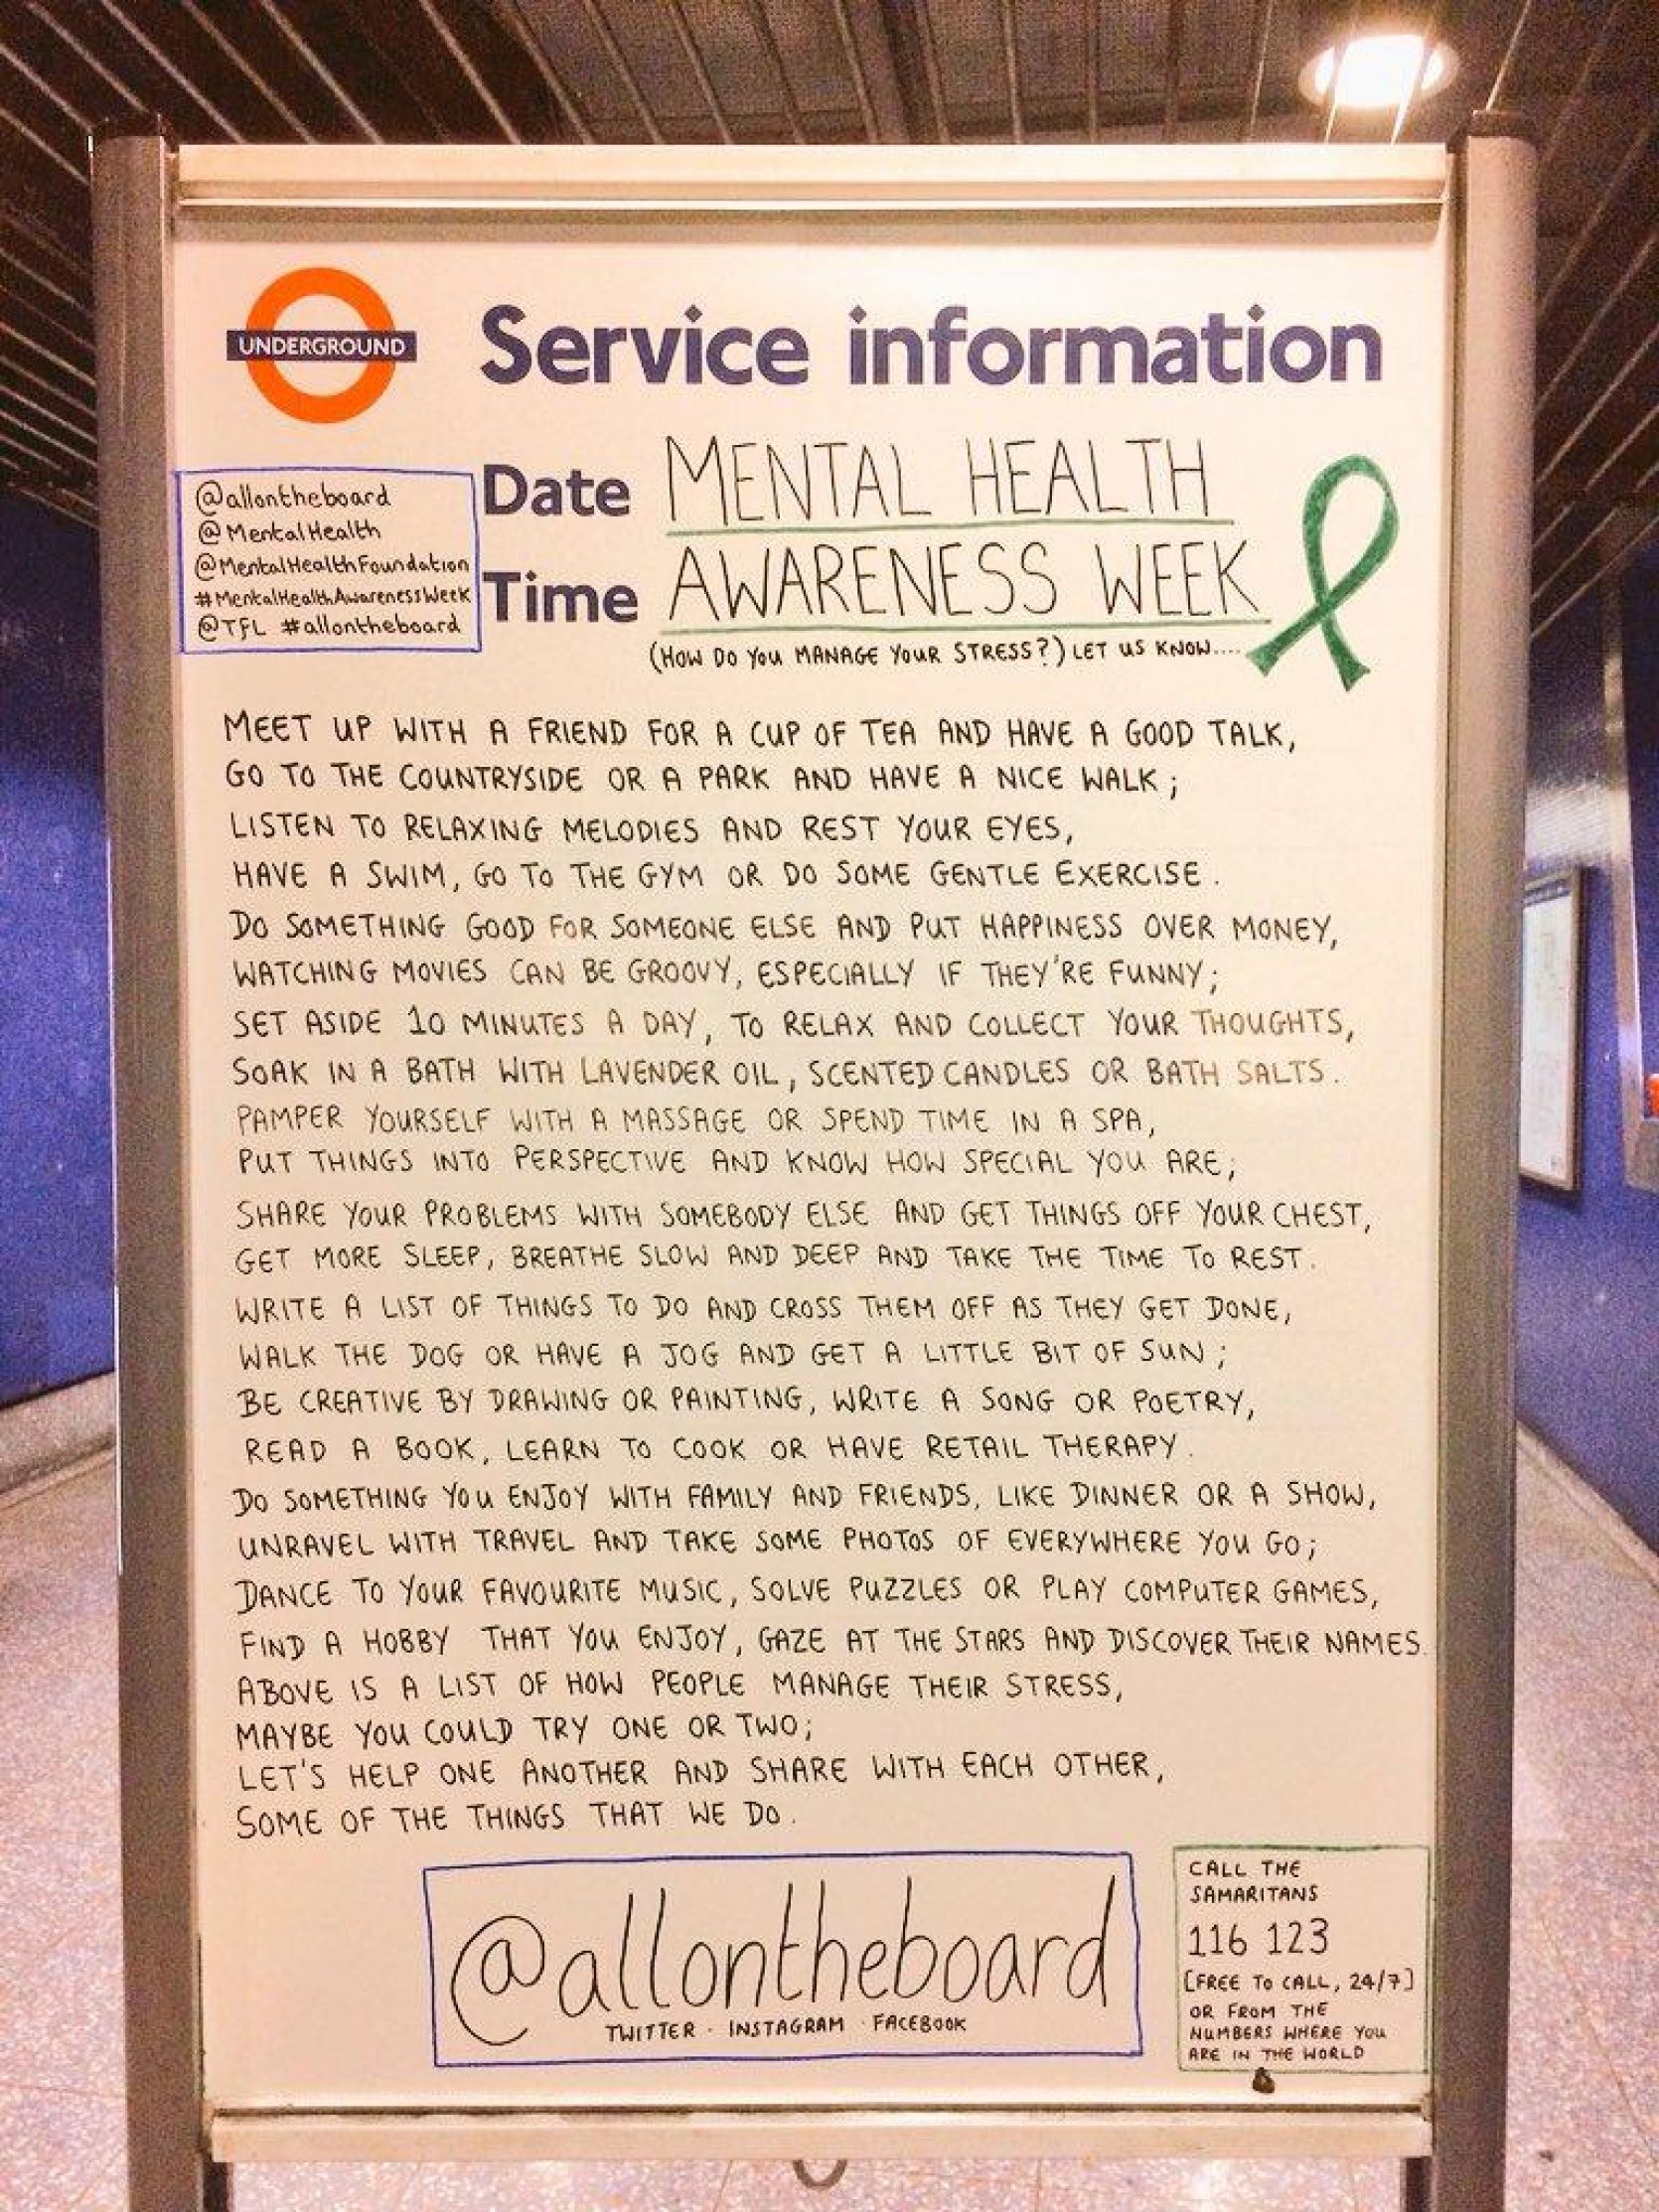 UNDERGROUND
Service information
Date MENTAL HEALTH
Time AWARENESS WEEK
(HOW DO YOU MANAGE YOUR STRESS?) LET US KNOW....
@allontheboard
@MentalHealth
@MentalHealthFoundation
#MentalHealthAwarenessWeek
@TFL #allontheboard
MEET UP WITH A FRIEND FOR A CUP OF TEA AND HAVE A GOOD TALK,
GO TO THE COUNTRYSIDE OR A PARK AND HAVE A NICE WALK;
LISTEN TO RELAXING MELODIES AND REST YOUR EYES,
HAVE A SWIM, GO TO THE GYM OR DO SOME GENTLE EXERCISE.
DO SOMETHING GOOD FOR SOMEONE ELSE AND PUT HAPPINESS OVER MONEY,
WATCHING MOVIES CAN BE GROOVY, ESPECIALLY IF THEY'RE FUNNY;
SET ASIDE 10 MINUTES A DAY, TO RELAX AND COLLECT YOUR THOUGHTS,
SOAK IN A BATH WITH LAVENDER OIL, SCENTED CANDLES OR BATH SALTS.
PAMPER YOURSELF WITH A MASSAGE OR SPEND TIME IN A SPA,
PUT THINGS INTO PERSPECTIVE AND KNOW HOW SPECIAL YOU ARE;
SHARE YOUR PROBLEMS WITH SOMEBODY ELSE AND GET THINGS OFF YOUR CHEST,
GET MORE SLEEP, BREATHE SLOW AND DEEP AND TAKE THE TIME TO REST.
WRITE A LIST OF THINGS TO DO AND CROSS THEM OFF AS THEY GET DONE,
WALK THE DOG OR HAVE A JOG AND GET A LITTLE BIT OF SUN;
BE CREATIVE BY DRAWING OR PAINTING, WRITE A SONG OR POETRY,
READ A BOOK, LEARN TO COOK OR HAVE RETAIL THERAPY.
DO SOMETHING YOU ENJOY WITH FAMILY AND FRIENDS, LIKE DINNER OR A SHOW,
UNRAVEL WITH TRAVEL AND TAKE SOME PHOTOS OF EVERYWHERE YOU GO;
DANCE TO YOUR FAVOURITE MUSIC, SOLVE PUZZLES OR PLAY COMPUTER GAMES,
FIND A HOBBY THAT YOU ENJOY, GAZE AT THE STARS AND DISCOVER THEIR NAMES.
ABOVE IS A LIST OF HOW PEOPLE MANAGE THEIR STRESS,
MAYBE YOU COULD TRY ONE OR TWO;
LET'S HELP ONE ANOTHER AND SHARE WITH EACH OTHER,
SOME OF THE THINGS THAT WE DO.
@allontheboard
TWITTER · INSTAGRAM · FACEBOOK
CALL THE
SAMARITANS
116 123
[FREE TO CALL, 24/7]
OR FROM THE
NUMBERS WHERE YOU
ARE IN THE WORLD